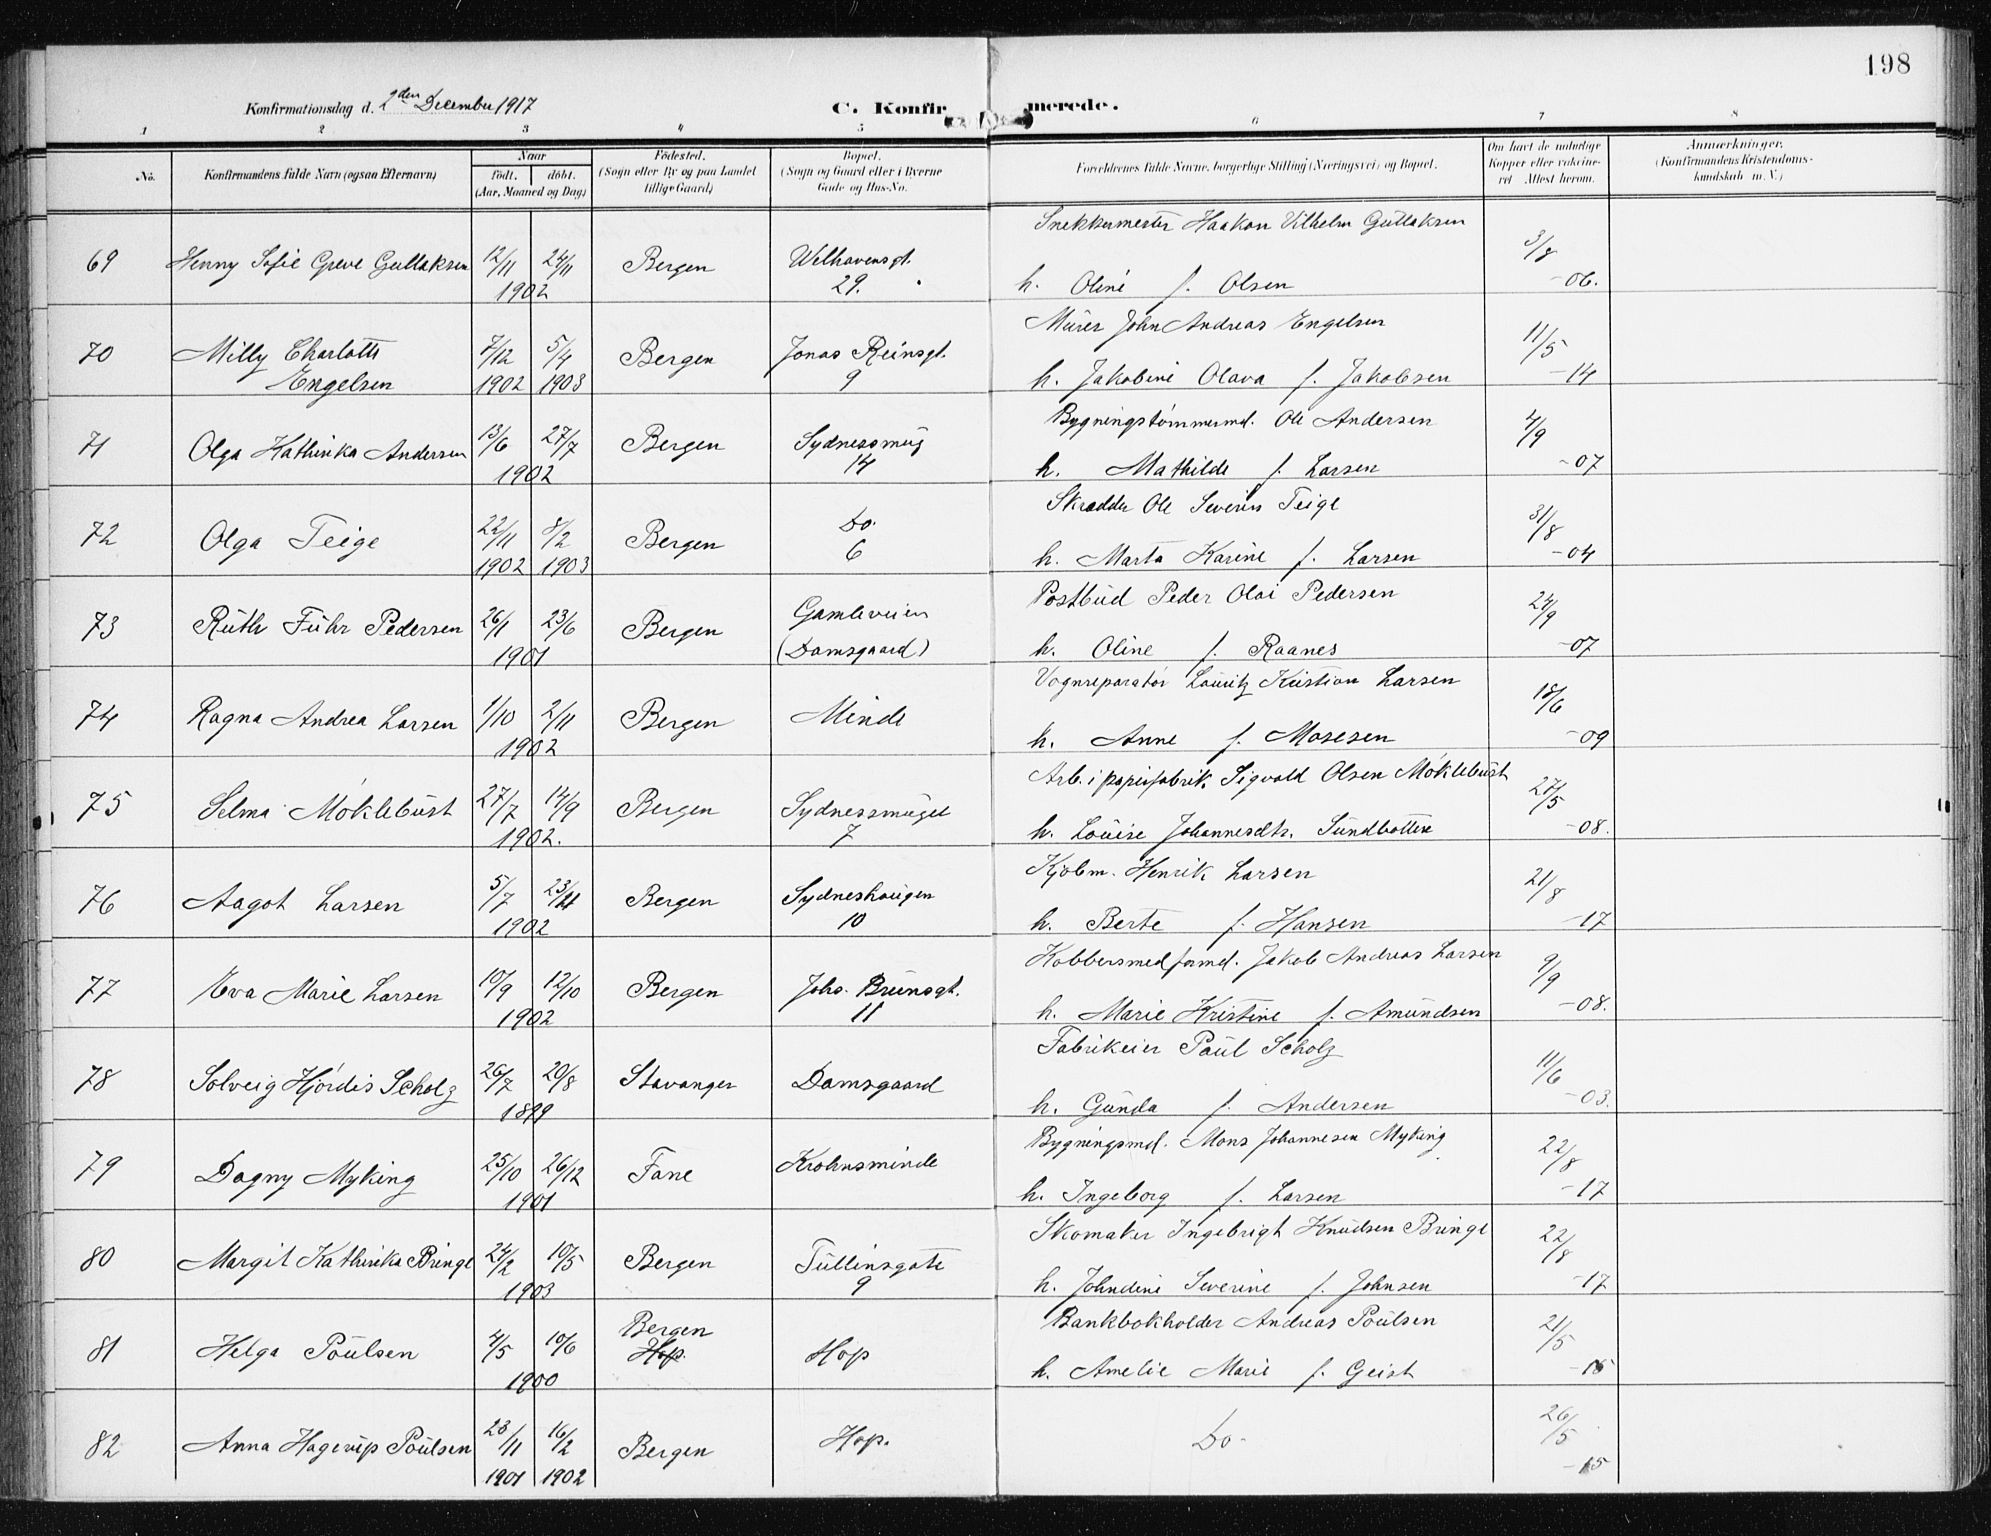 198
Konfirmationsdag d. 2den December 1917
C. Konfirmerede.
1 2 3 4 5 6 7 8
No. Konfirmandens fulde Navn (ogsaa Efternavn) Naar født. døbt. (Aar, Maaned og Dag) Fødested. (Sogn eller By og paa Landet tillige Gaard) Bopæl. (Sogn og Gaard eller i Byerne Gade og Hus-No. Forældrenes fulde Navne, borgerlige Stilling (Næringsvei) og Bopæl. Om havt de naturlige Kopper eller vaccineret Attest herom. Anmærkninger. (Konfirmandens Kristendomskundskab m. V.)
Snekkermester Haakon Vilhelm Gullaksen
69 Henny Sofie Greve Gullaksen 12/11 24/11 Bergen Welhavensgt. 3/8
1902 29. h. Oline f. Olsen -06.
Murer John Andreas Engelsen
70 Milly Charlotte 7/12 5/4 Bergen Jonas Reinsgt. 11/5
Engelsen 1902 1903 9 h. Jakobine Olava f. Jakobsen -14
Bygningstømmermd. Ole Andersen
71 Olga Kathinka Andersen 13/6 27/7 Bergen Sydnessmug 4/9
1902 14 h. Mathilde f. Larsen -07
Skrædder Ole Severin Teige
72 Olga Teige 22/11 8/2 Bergen Do. 31/8
1902 1903 6 h. Marta Karine f. Larsen -04
Postbud Peder Olai Pedersen
73 Ruth Führ Pedersen 26/1 23/6 Bergen Gamleveien 24/9
1901 (Damsgaard) h. Oline f. Raanes -07
Vognreparatør Lauritz Kristian Larsen
74 Ragna Andrea Larsen 1/10 2/11 Bergen Minde 18/6
1902 h. Anne f. Mosesen -09
Arb. i papirfabrik Sigvald Olsen Møklebust
75 Selma Møklebust 27/7 14/9 Bergen Sydnessmuget 27/5
1902. 7 h. Louise Johannesdtr. Sundbotten -08.
Kjøbm. Henrik Larsen
76 Aagot Larsen 5/7 23/11 Bergen Sydneshaugen 21/8
1902 10 h. Berte f. Hansen -17
Kobbersmedformd. Jakob Andreas Larsen
77 Eva Marie Larsen 10/9 12/10 Bergen Johs. Brunsgt. 9/9
1902 11 h. Marie Kristine f. Amundsen -08.
Fabrikeier Paul Scholz
78 Solveig Hjørdis Scholz 26/7 20/8 Stavanger Damsgaard 11/6
1899 h. Gunda f. Andersen -03.
Bygningsmd. Mons Johannesen Myking
79 Dagny Myking 25/10 26/12 Fane Krohnsminde 22/8
1901 h. Ingeborg f. Larsen -17
Skomaker Ingebrigt Knudsen Bringe
80 Margit Kathinka Bringe 24/2 10/5 Bergen Tullinsgate 22/8
1903 9 h. Johndine Severine f. Johnsen -17
Bergen Bankbokholder Andreas Poulsen
81 Helga Poulsen 4/5 10/6 Hop. Hop 21/5
1900 h. Amelie Marie f. Geist -15
82 Anna Hagerup Poulsen 23/11 16/2 Bergen Hop. Do- 26/5
1901 1902 -15